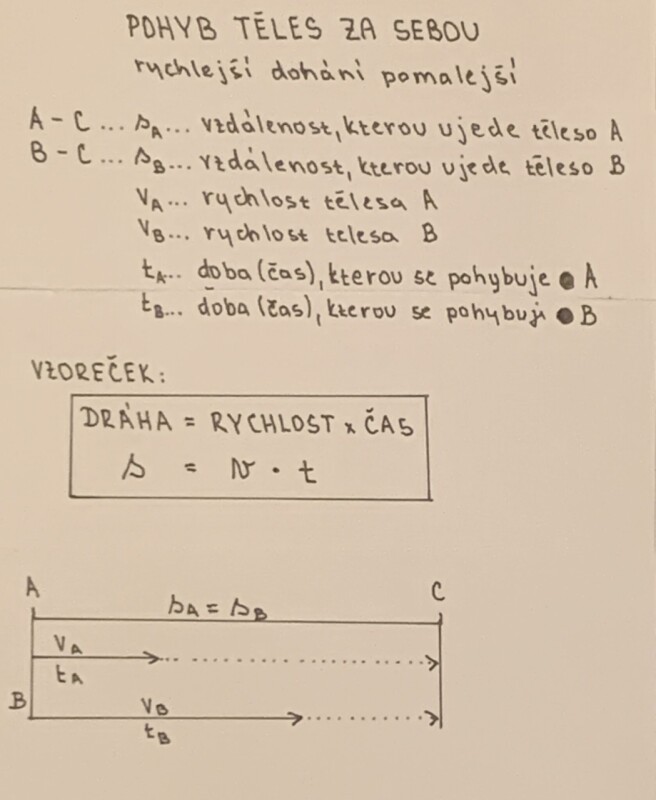 POHYB TĚLES ZA SEBOU
rychlejší dohání pomalejší
A - C ... sA... vzdálenost, kterou ujede těleso A
B - C ... sB... vzdálenost, kterou ujede těleso B
VA... rychlost tělesa A
VB... rychlost telesa B
tA.. doba (čas), kterou se pohybuje ● A
tB... doba (čas), kterou se pohybuji ● B
VZOREČEK:
DRÁHA = RYCHLOST x ČAS
s = v · t
A
C
sA = sB
VA
tA
B
VB
tB